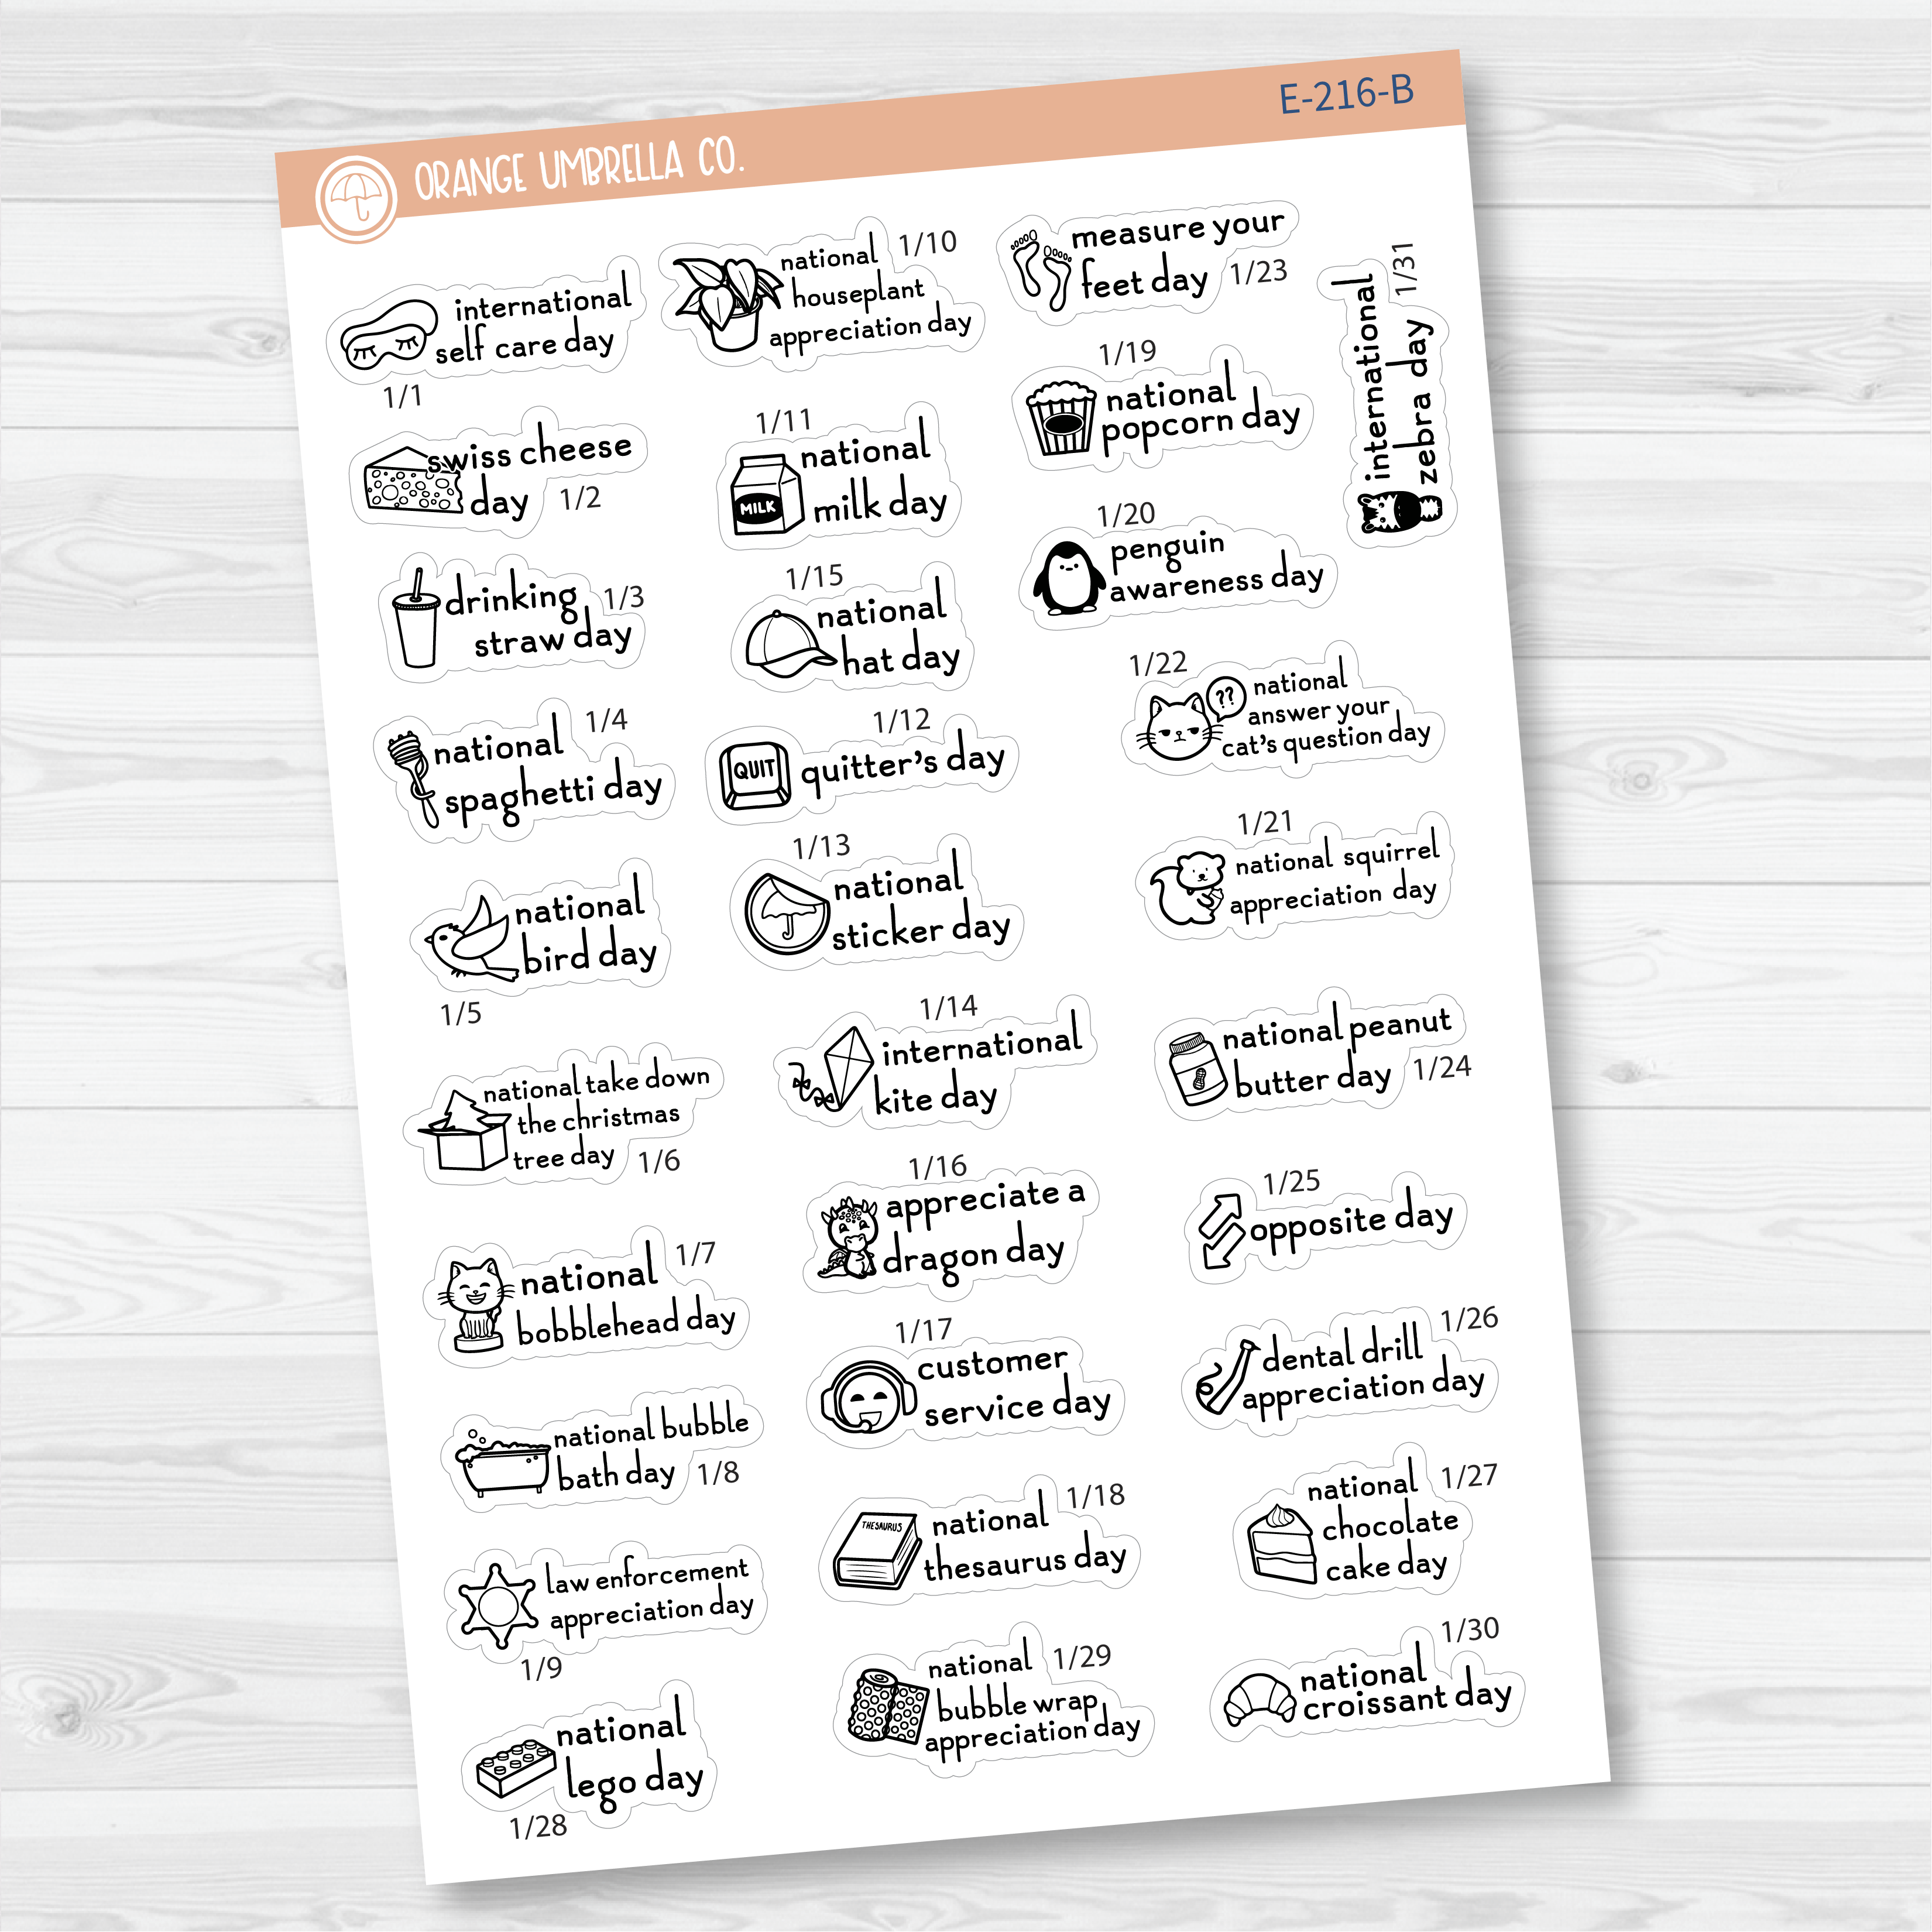 ORANGE UMBRELLA CO.
E-216-B
international
self care day
1/1
swiss cheese
day
1/2
drinking
straw day
1/3
national
spaghetti day
1/4
national
bird day
1/5
national take down
the christmas
tree day
1/6
national
bobblehead day
1/7
national bubble
bath day
1/8
law enforcement
appreciation day
1/9
national
lego day
1/28
national
houseplant
appreciation day
1/10
1/11
MILK
national
milk day
1/15
national
hat day
1/12
QUIT
quitter's day
1/13
national
sticker day
1/14
international
kite day
1/16
appreciate a
dragon day
1/17
customer
service day
THESAURUS
national
thesaurus day
1/18
national
bubble wrap
appreciation day
1/29
measure your
feet day
1/23
1/19
national
popcorn day
1/20
penguin
awareness day
1/22
??
national
answer your
cat's question day
1/21
national squirrel
appreciation day
national peanut
butter day
1/24
1/25
opposite day
1/26
dental drill
appreciation day
national
chocolate
cake day
1/27
1/30
national
croissant day
international
zebra day
1/31